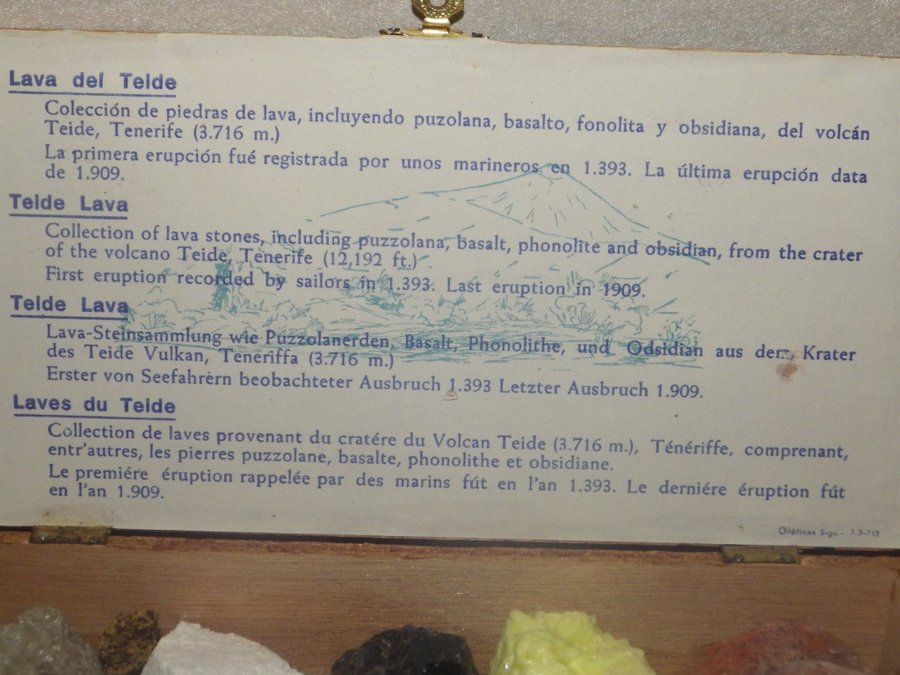 Lava del Teide
Colección de piedras de lava, incluyendo puzolana, basalto, fonolita y obsidiana, del volcán
Teide, Tenerife (3.716 m.)
La primera erupción fué registrada por unos marineros en 1.393. La última erupción data
de 1.909.
Teide Lava
Collection of lava stones, including puzzolana, basalt, phonolite and obsidian, from the crater
of the volcano Teide, Tenerife (12,192 ft.)
First eruption recorded by sailors in 1.393. Last eruption in 1909.
Teide Lava
Lava-Steinsammlung wie Puzzolanerden, Basalt, Phonolithe, und Odsidian aus dem Krater
des Teide Vulkan, Teneriffa (3.716 m.)
Erster von Seefahrern beobachteter Ausbruch 1.393 Letzter Ausbruch 1.909.
Laves du Teide
Collection de laves provenant du cratére du Volcan Teide (3.716 m.), Ténériffe, comprenant,
entr'autres, les pierres puzzolane, basalte, phonolithe et obsidiane.
Le premiére éruption rappelée par des marins fút en l'an 1.393. Le derniére éruption fút
en l'an 1.909.
Gráficas